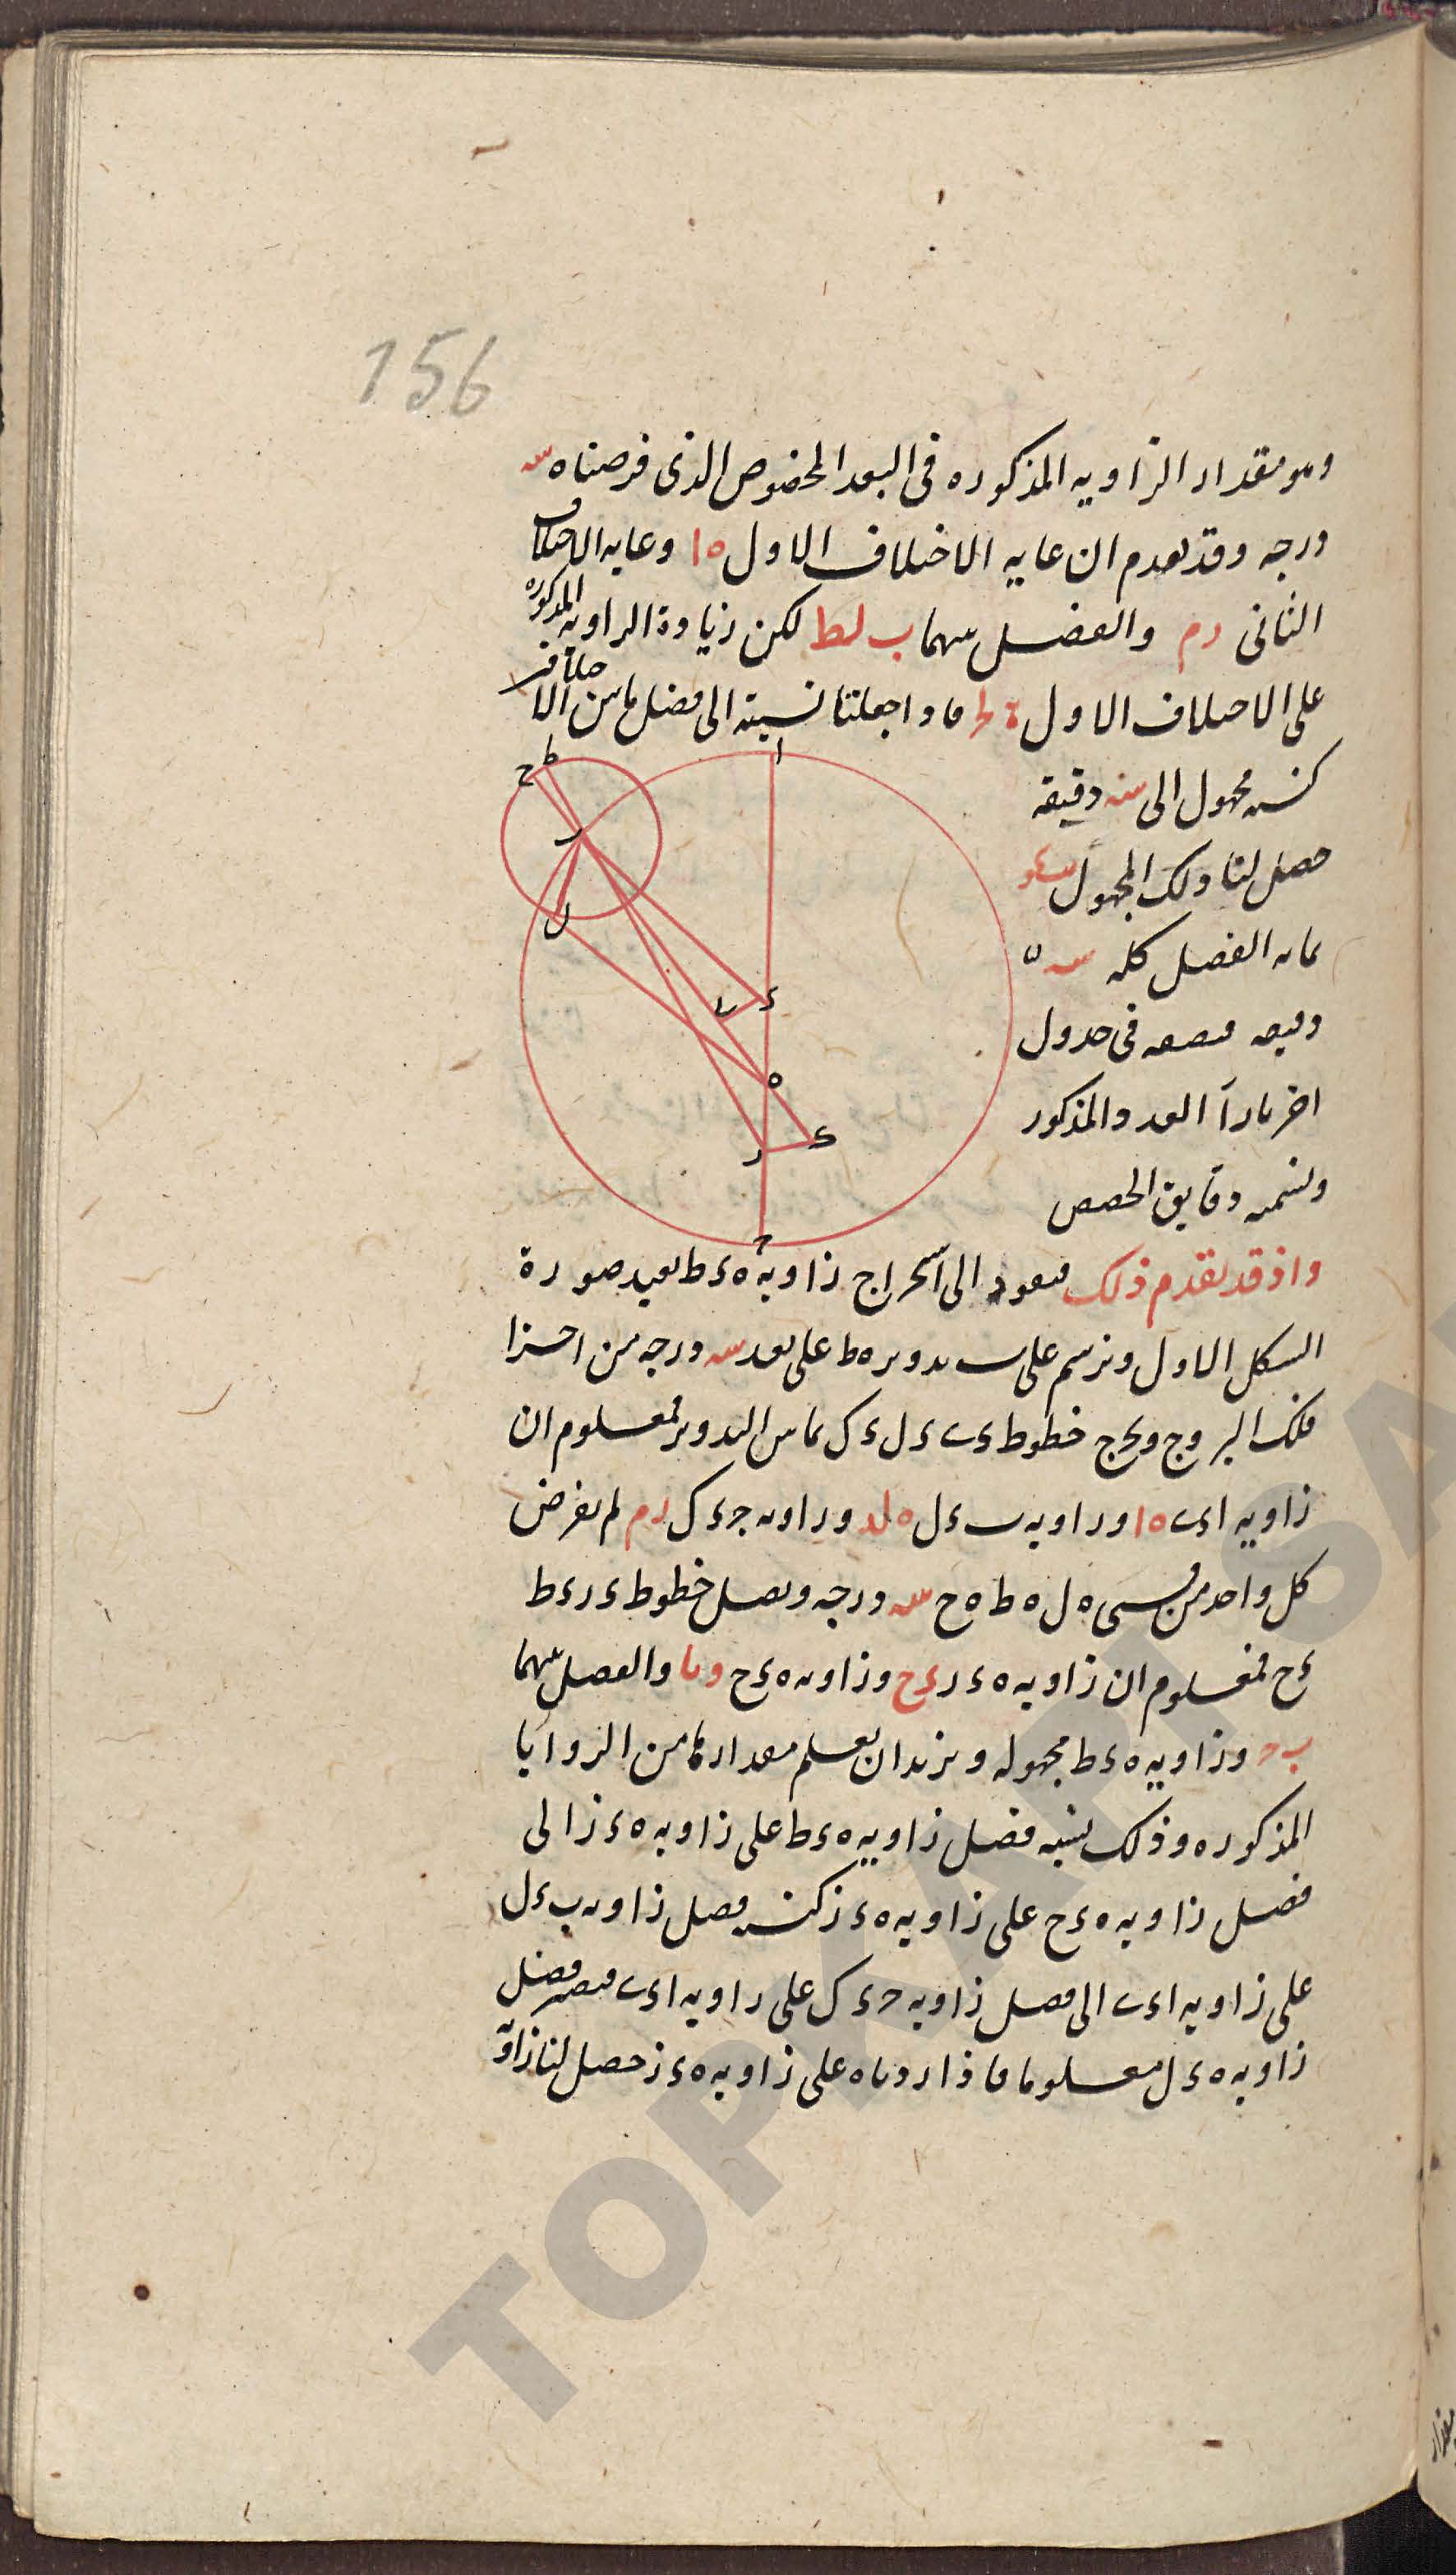 156
وهو مقدار الزاويه المذكوره فى البعد المخصوص الذى فرضناه سه
درجه وقد تقدم ان غايه الاختلاف الاول ه ا وغايه الاختلاف
الثانى رم والفضل بينهما ب لط لكن زيادة الزاويه المذكوره
على الاختلاف الاول فاذا جعلنا نسبته الى فضل ما بين الاختلاف
كنسبه مجهول الى سه دقيقه
حصل لنا ذلك المجهول
الفضل كله سه
دقيقه فنضعه فى جدول
اخر بازآ العدد المذكور
ونسميه دقايق الحصص
واذ قد تقدم ذلك فنعود الى استخراج زاويه ه ء ط نعيد صورة
الشكل الاول ونرسم على ب تدوير ه ط على بعد سه درجه من اجزا
فلك البروج ونخرج خطوط ء ب ء ل ء ك تماس التدوير فمعلوم ان
زاويه ا ء ب ه ا وزاويه ب ء ل ه لد وزاويه ج ء ك رم ثم نفرض
كل واحد من قسى ه ل ه ط ه ح سه درجه ونصل خطوط ء ر ء ط
ء ح فمعلوم ان زاويه ه ء ر ء ح وزاويه ه ء ح ونا والفضل بينهما
ب ح وزاويه ه ء ط مجهوله ونريد ان نعلم مقدارها من الزوايا
المذكوره وذلك نسبه فضل زاويه ه ء ط على زاويه ه ء ز الى
فضل زاويه ه ء ح على زاويه ه ء ز كنسبه فضل زاويه ب ء ل
على زاويه ا ء ب الى فضل زاويه ح ء ك على زاويه ا ء ب فيصير فضل
زاويه ه ء ل معلوما فاذا زدناه على زاويه ه ء ز حصل لنا زاوية